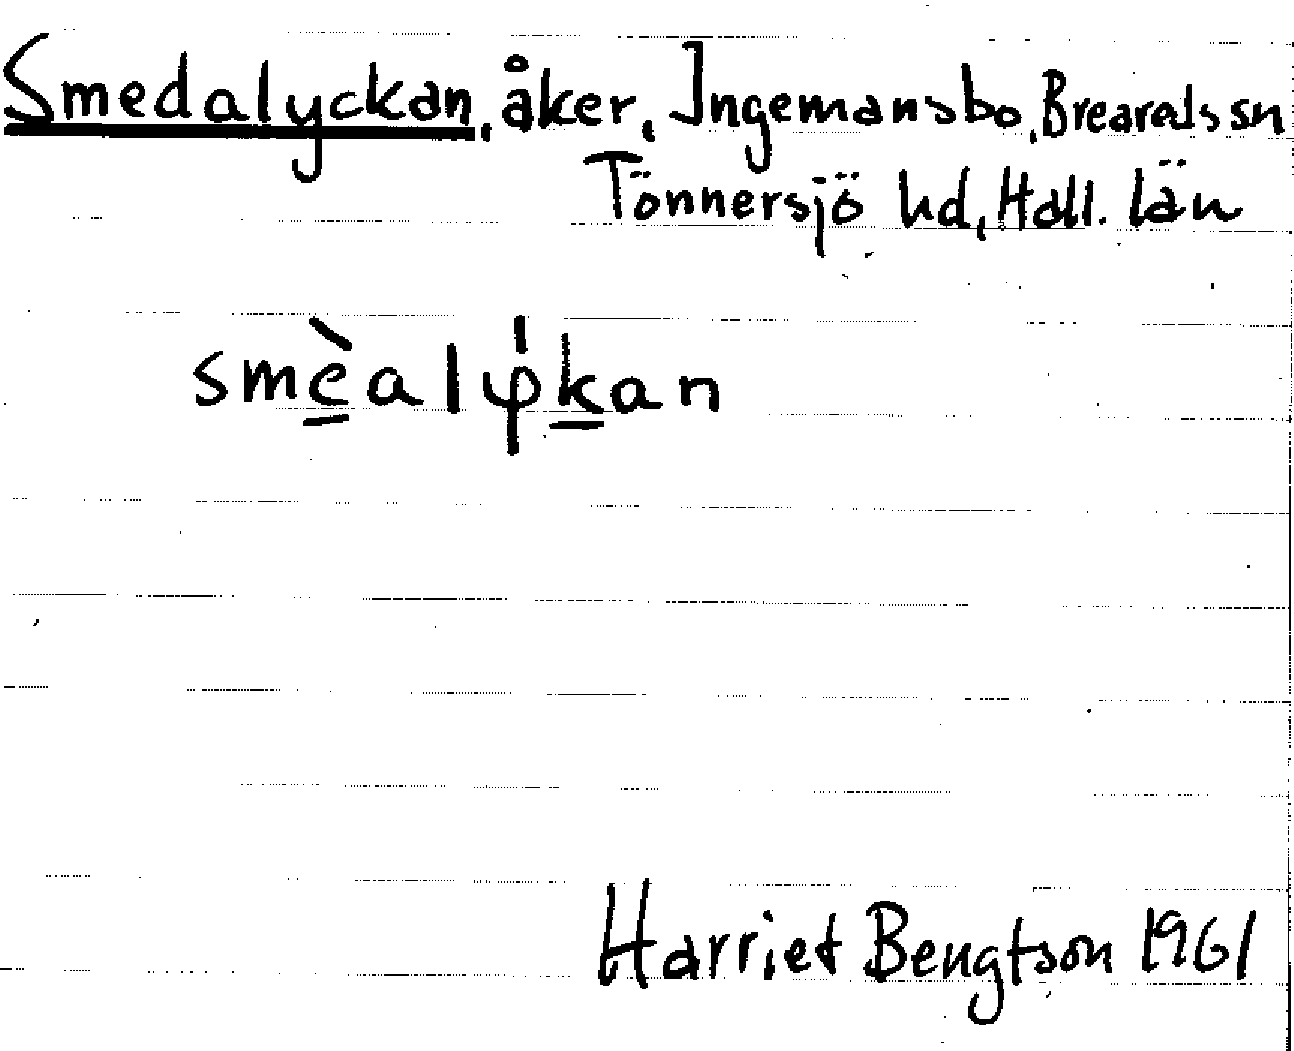 Smedalyckan, åker, Ingemansbo, Breareds sn
Tönnersjö hd, Hall. län
smè̱alφ̍ḵan
Harriet Bengtson 1961